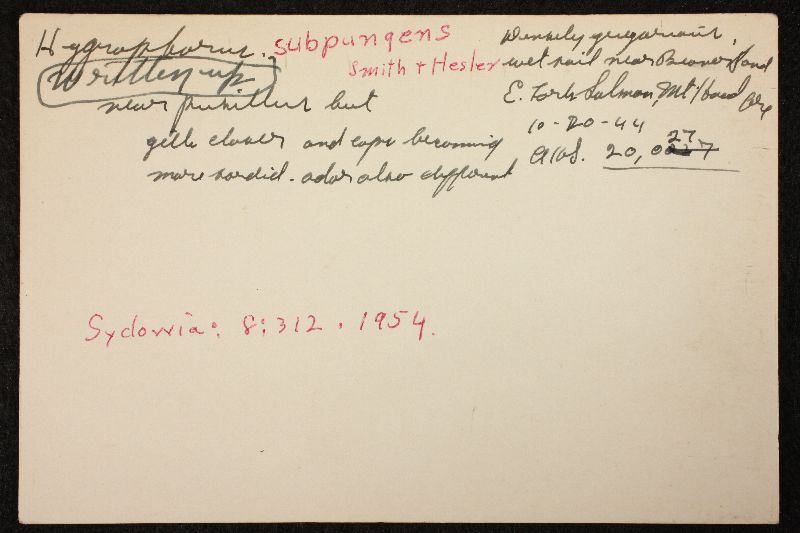 Hygrophorus. subpungens
Smith + Hesler
Written up
near pusillus but
gills closer and caps becoming
more sordid. odor also different
Densely gregarious,
wet soil near Beaver Pond
E. Fork Salmon, Mt Hood Ore
10-20-44
AHS. 20,027
Sydowia: 8:312. 1954.